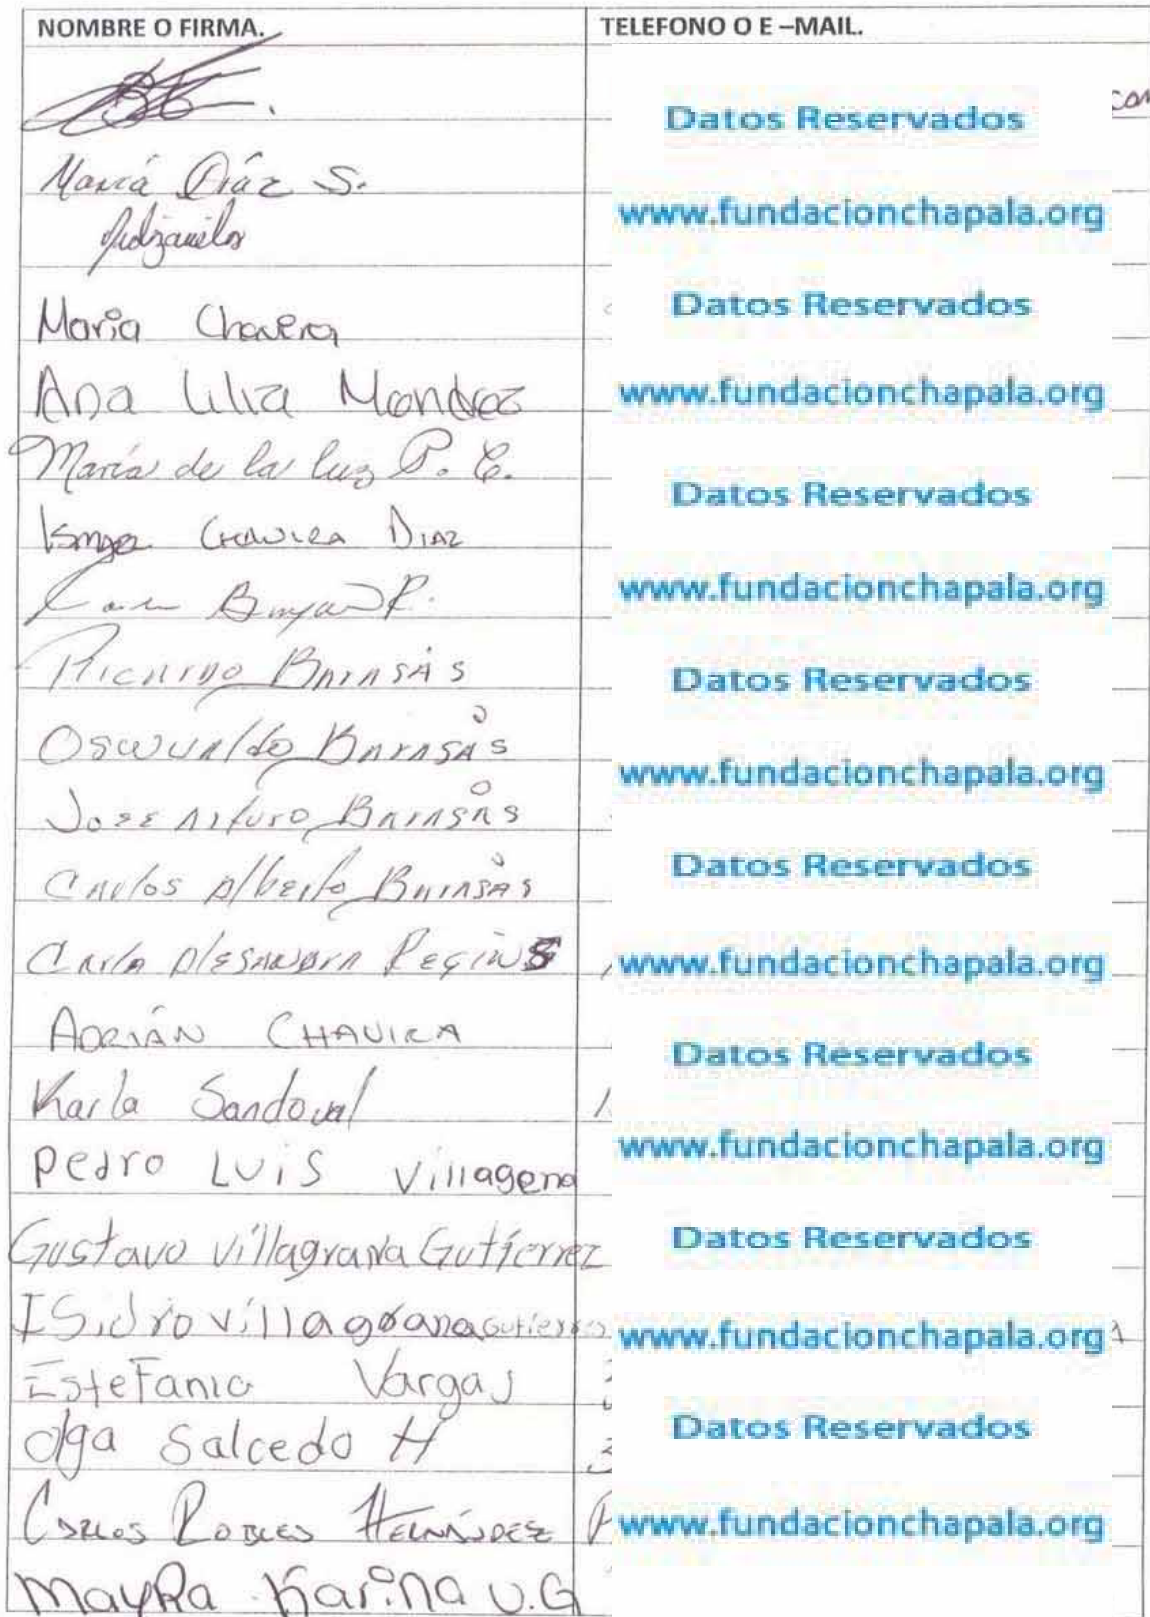 NOMBRE O FIRMA. TELEFONO O E –MAIL.
Datos Reservados
María Díaz S.
www.fundacionchapala.org
Maria Chavira Datos Reservados
Ana Lilia Mendez www.fundacionchapala.org
María de la luz P. C.
Datos Reservados
CHAVIRA DIAZ
www.fundacionchapala.org
Ricardo Barasás Datos Reservados
Oswualdo Barasás
www.fundacionchapala.org
Jose Arturo Barasás
Datos Reservados
Carlos Alberto Barasás
Carla Alesandra www.fundacionchapala.org
ADRIÁN CHAVIRA
Datos Reservados
Karla Sandoval
www.fundacionchapala.org
Pedro LUIS Villagena
Gustavo Villagrana Gutíerrez Datos Reservados
ISidro Villagrana Gutierrez www.fundacionchapala.org
EsteFania Vargas
Datos Reservados
Olga Salcedo H
CARLOS ROBLES HERNÁNDEZ www.fundacionchapala.org
MayRa Karina V.G